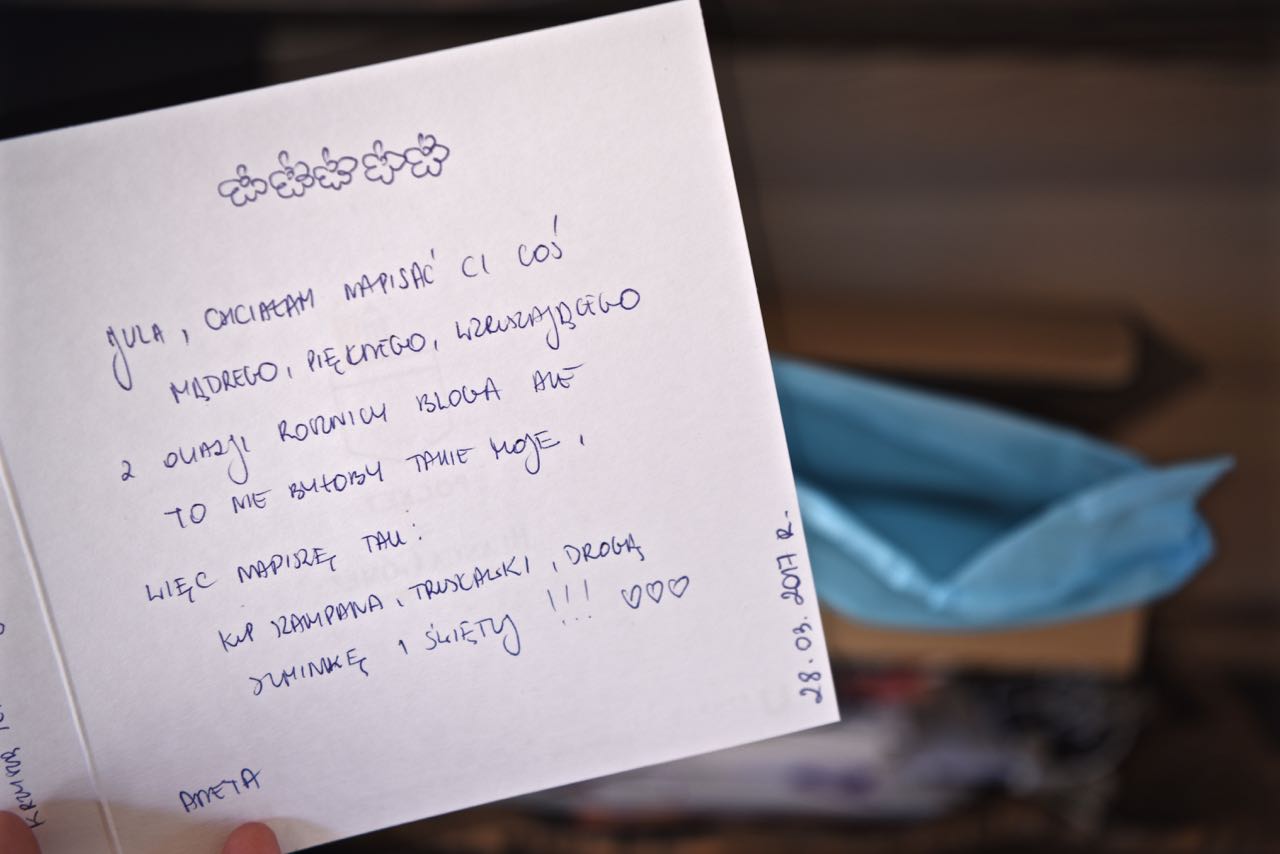 JULA, CHCIAŁAM NAPISAĆ CI COŚ
MĄDREGO, PIĘKNEGO, WZRUSZAJĄCEGO
Z OKAZJI ROCZNICY BLOGA ALE
TO NIE BYŁOBY TAKIE MOJE,
WIĘC NAPISZĘ TAK:
KUP SZAMPANA, TRUSKAWKI, DROGĄ
SZMINKĘ I ŚWIĘTUJ !!! ♡♡♡
ANETA
28.03.2017 R.